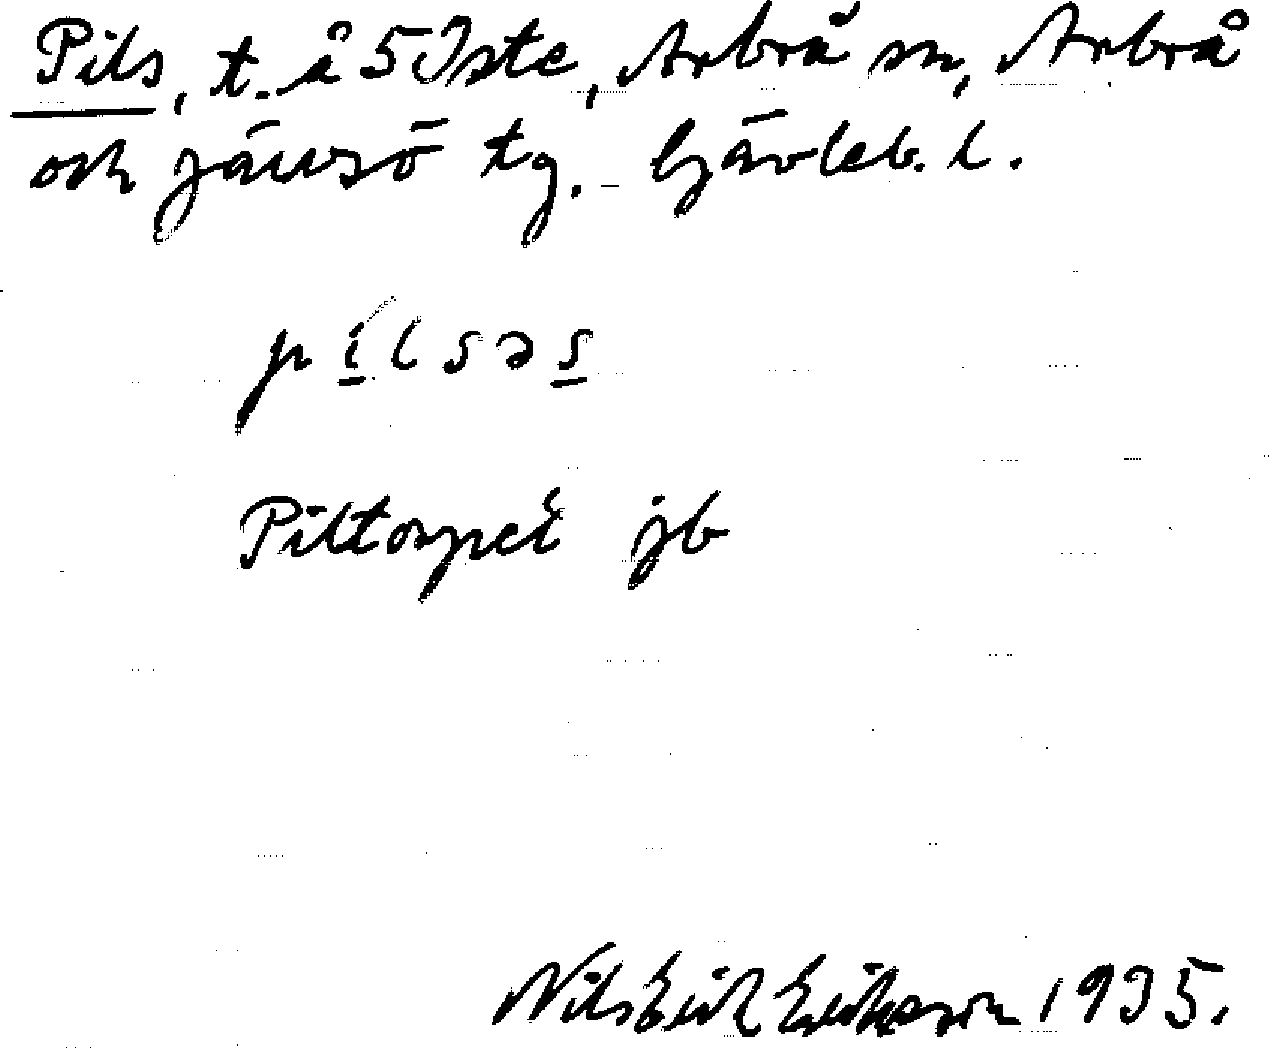 Pils, t. å 5 Iste, Arbrå sn, Arbrå
och Järvsö tg. Gävleb. l.
pílsəs
Piltorpet jb
Nils Erik Eriksson 1935.